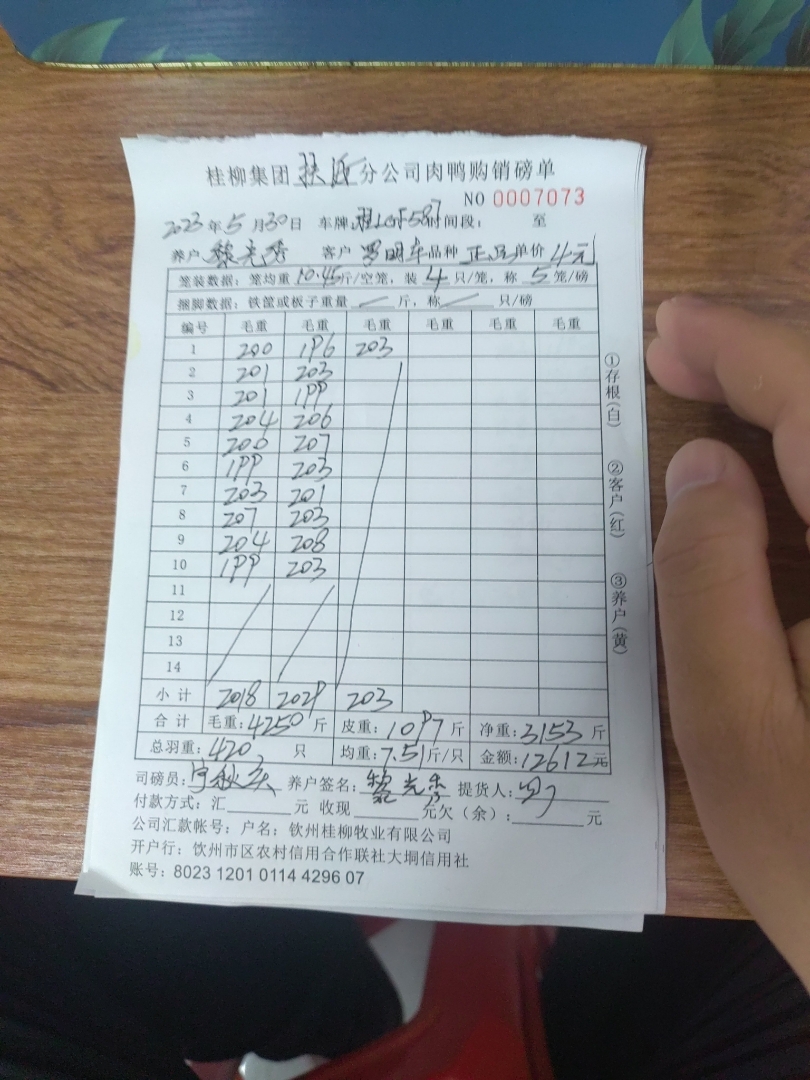 桂柳集团 扶沥 分公司肉鸭购销磅单
NO 0007073
2023年5月30日 车牌: 时间段: 至
养户 黎光秀 客户 罗明车 品种 正品 单价 4元
笼装数据: 笼均重 10.45 斤/空笼, 装 4 只/笼, 称 5 笼/磅
捆脚数据: 铁筐或板子重量 / 斤, 称 / 只/磅
编号 毛重 毛重 毛重 毛重 毛重 毛重
1 200 196 203
2 201 203
3 201 199
4 204 206
5 200 207
6 199 203
7 203 201
8 207 203
9 204 208
10 199 203
11
12
13
14
小计 2018 2029 203
合计 毛重: 4250 斤 皮重: 1097 斤 净重: 3153 斤
总羽重: 420 只 均重: 7.51 斤/只 金额: 12612 元
司磅员: 养户签名: 黎光秀 提货人:
付款方式: 汇 元 收现 元 欠(余): 元
公司汇款帐号: 户名: 钦州桂柳牧业有限公司
开户行: 钦州市区农村信用合作联社大垌信用社
账号: 8023 1201 0114 4296 07
①存根(白) ②客户(红) ③养户(黄)